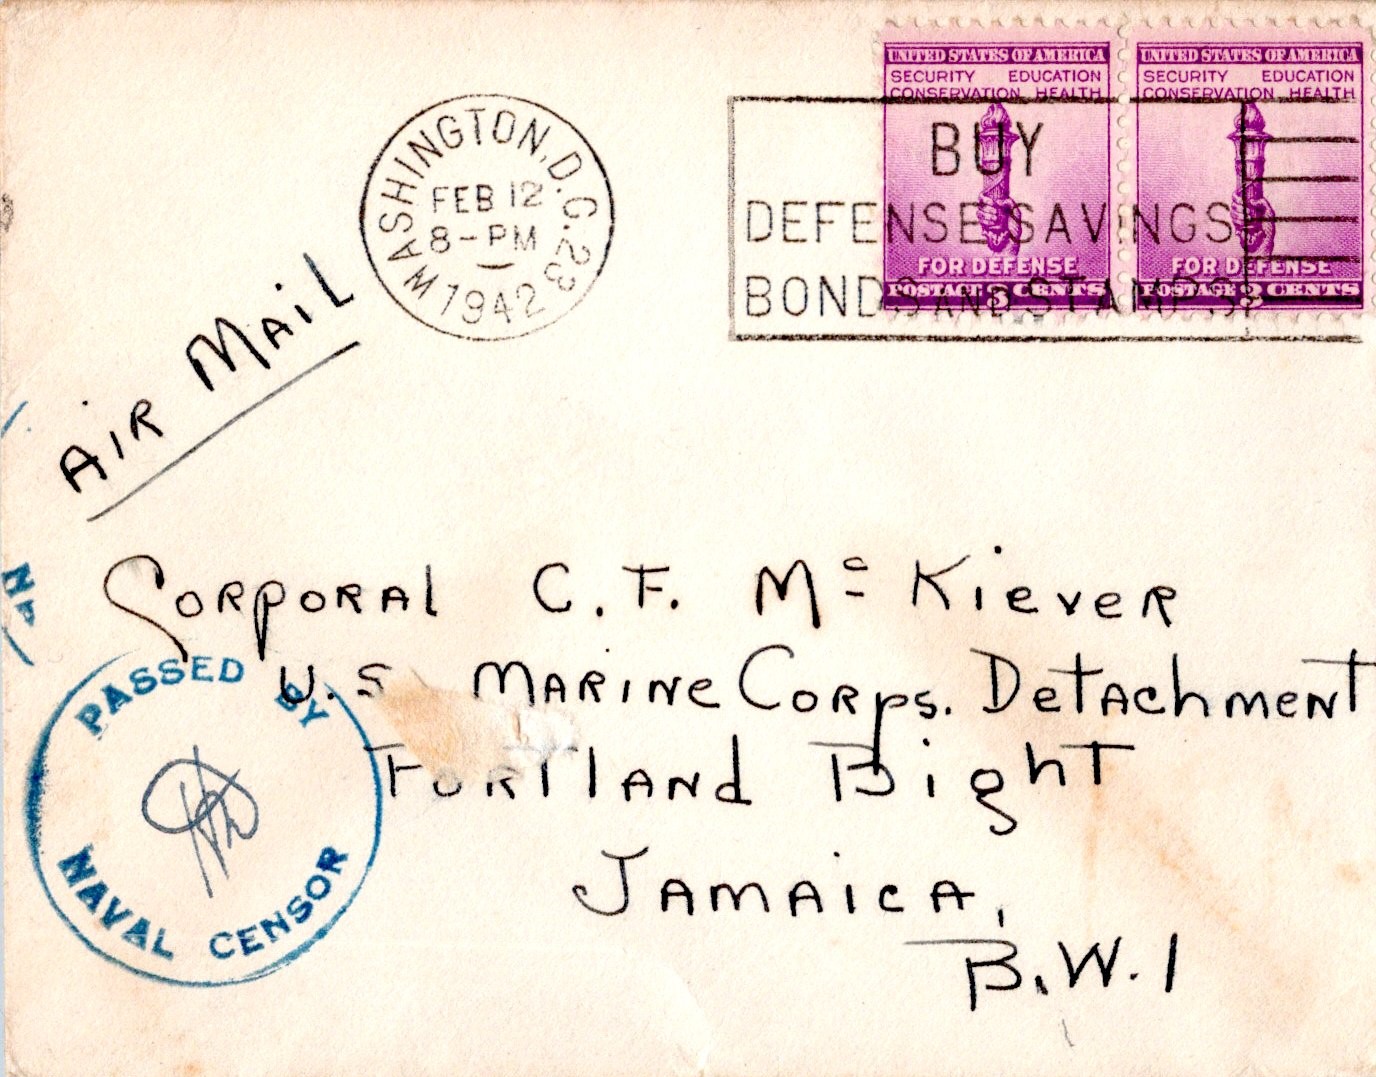 UNITED STATES OF AMERICA
SECURITY EDUCATION
CONSERVATION HEALTH
FOR DEFENSE
POSTAGE 3 CENTS
UNITED STATES OF AMERICA
SECURITY EDUCATION
CONSERVATION HEALTH
FOR DEFENSE
POSTAGE 3 CENTS
WASHINGTON, D.C. 23
FEB 12
8-PM
1942
BUY
DEFENSE SAVINGS
BONDS AND STAMPS
AIR MAIL
Corporal C. F. Mc Kiever
U.S. Marine Corps. Detachment
Portland Bight
Jamaica,
B.W.I
PASSED BY
NAVAL CENSOR